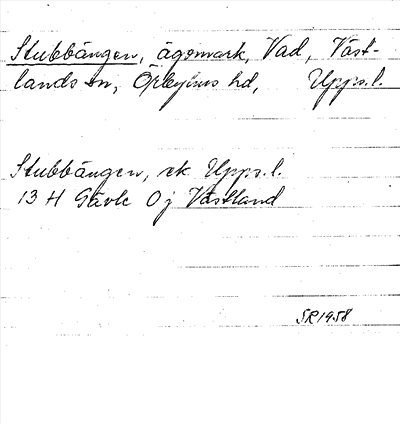 Stubbängen, ägomark, Vad, Väst-
lands sn, Örbyhus hd, Upps.l.
Stubbängen, ek Upps.l.
13 H Gävle 0j Västland
SR 1958